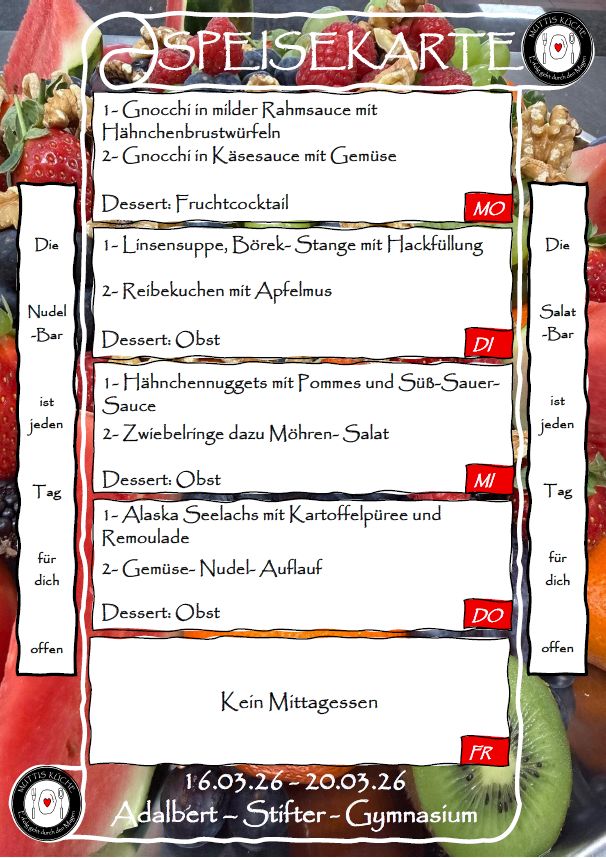 SPEISEKARTE
MUTTIS KÜCHE
Liebe geht durch den Magen
1- Gnocchi in milder Rahmsauce mit
Hähnchenbrustwürfeln
2- Gnocchi in Käsesauce mit Gemüse
Dessert: Fruchtcocktail
MO
1- Linsensuppe, Börek- Stange mit Hackfüllung
2- Reibekuchen mit Apfelmus
Dessert: Obst
DI
1- Hähnchennuggets mit Pommes und Süß-Sauer-
Sauce
2- Zwiebelringe dazu Möhren- Salat
Dessert: Obst
MI
1- Alaska Seelachs mit Kartoffelpüree und
Remoulade
2- Gemüse- Nudel- Auflauf
Dessert: Obst
DO
Kein Mittagessen
FR
Die
Nudel
-Bar
ist
jeden
Tag
für
dich
offen
Die
Salat
-Bar
ist
jeden
Tag
für
dich
offen
16.03.26 - 20.03.26
Adalbert – Stifter - Gymnasium
MUTTIS KÜCHE
Liebe geht durch den Magen